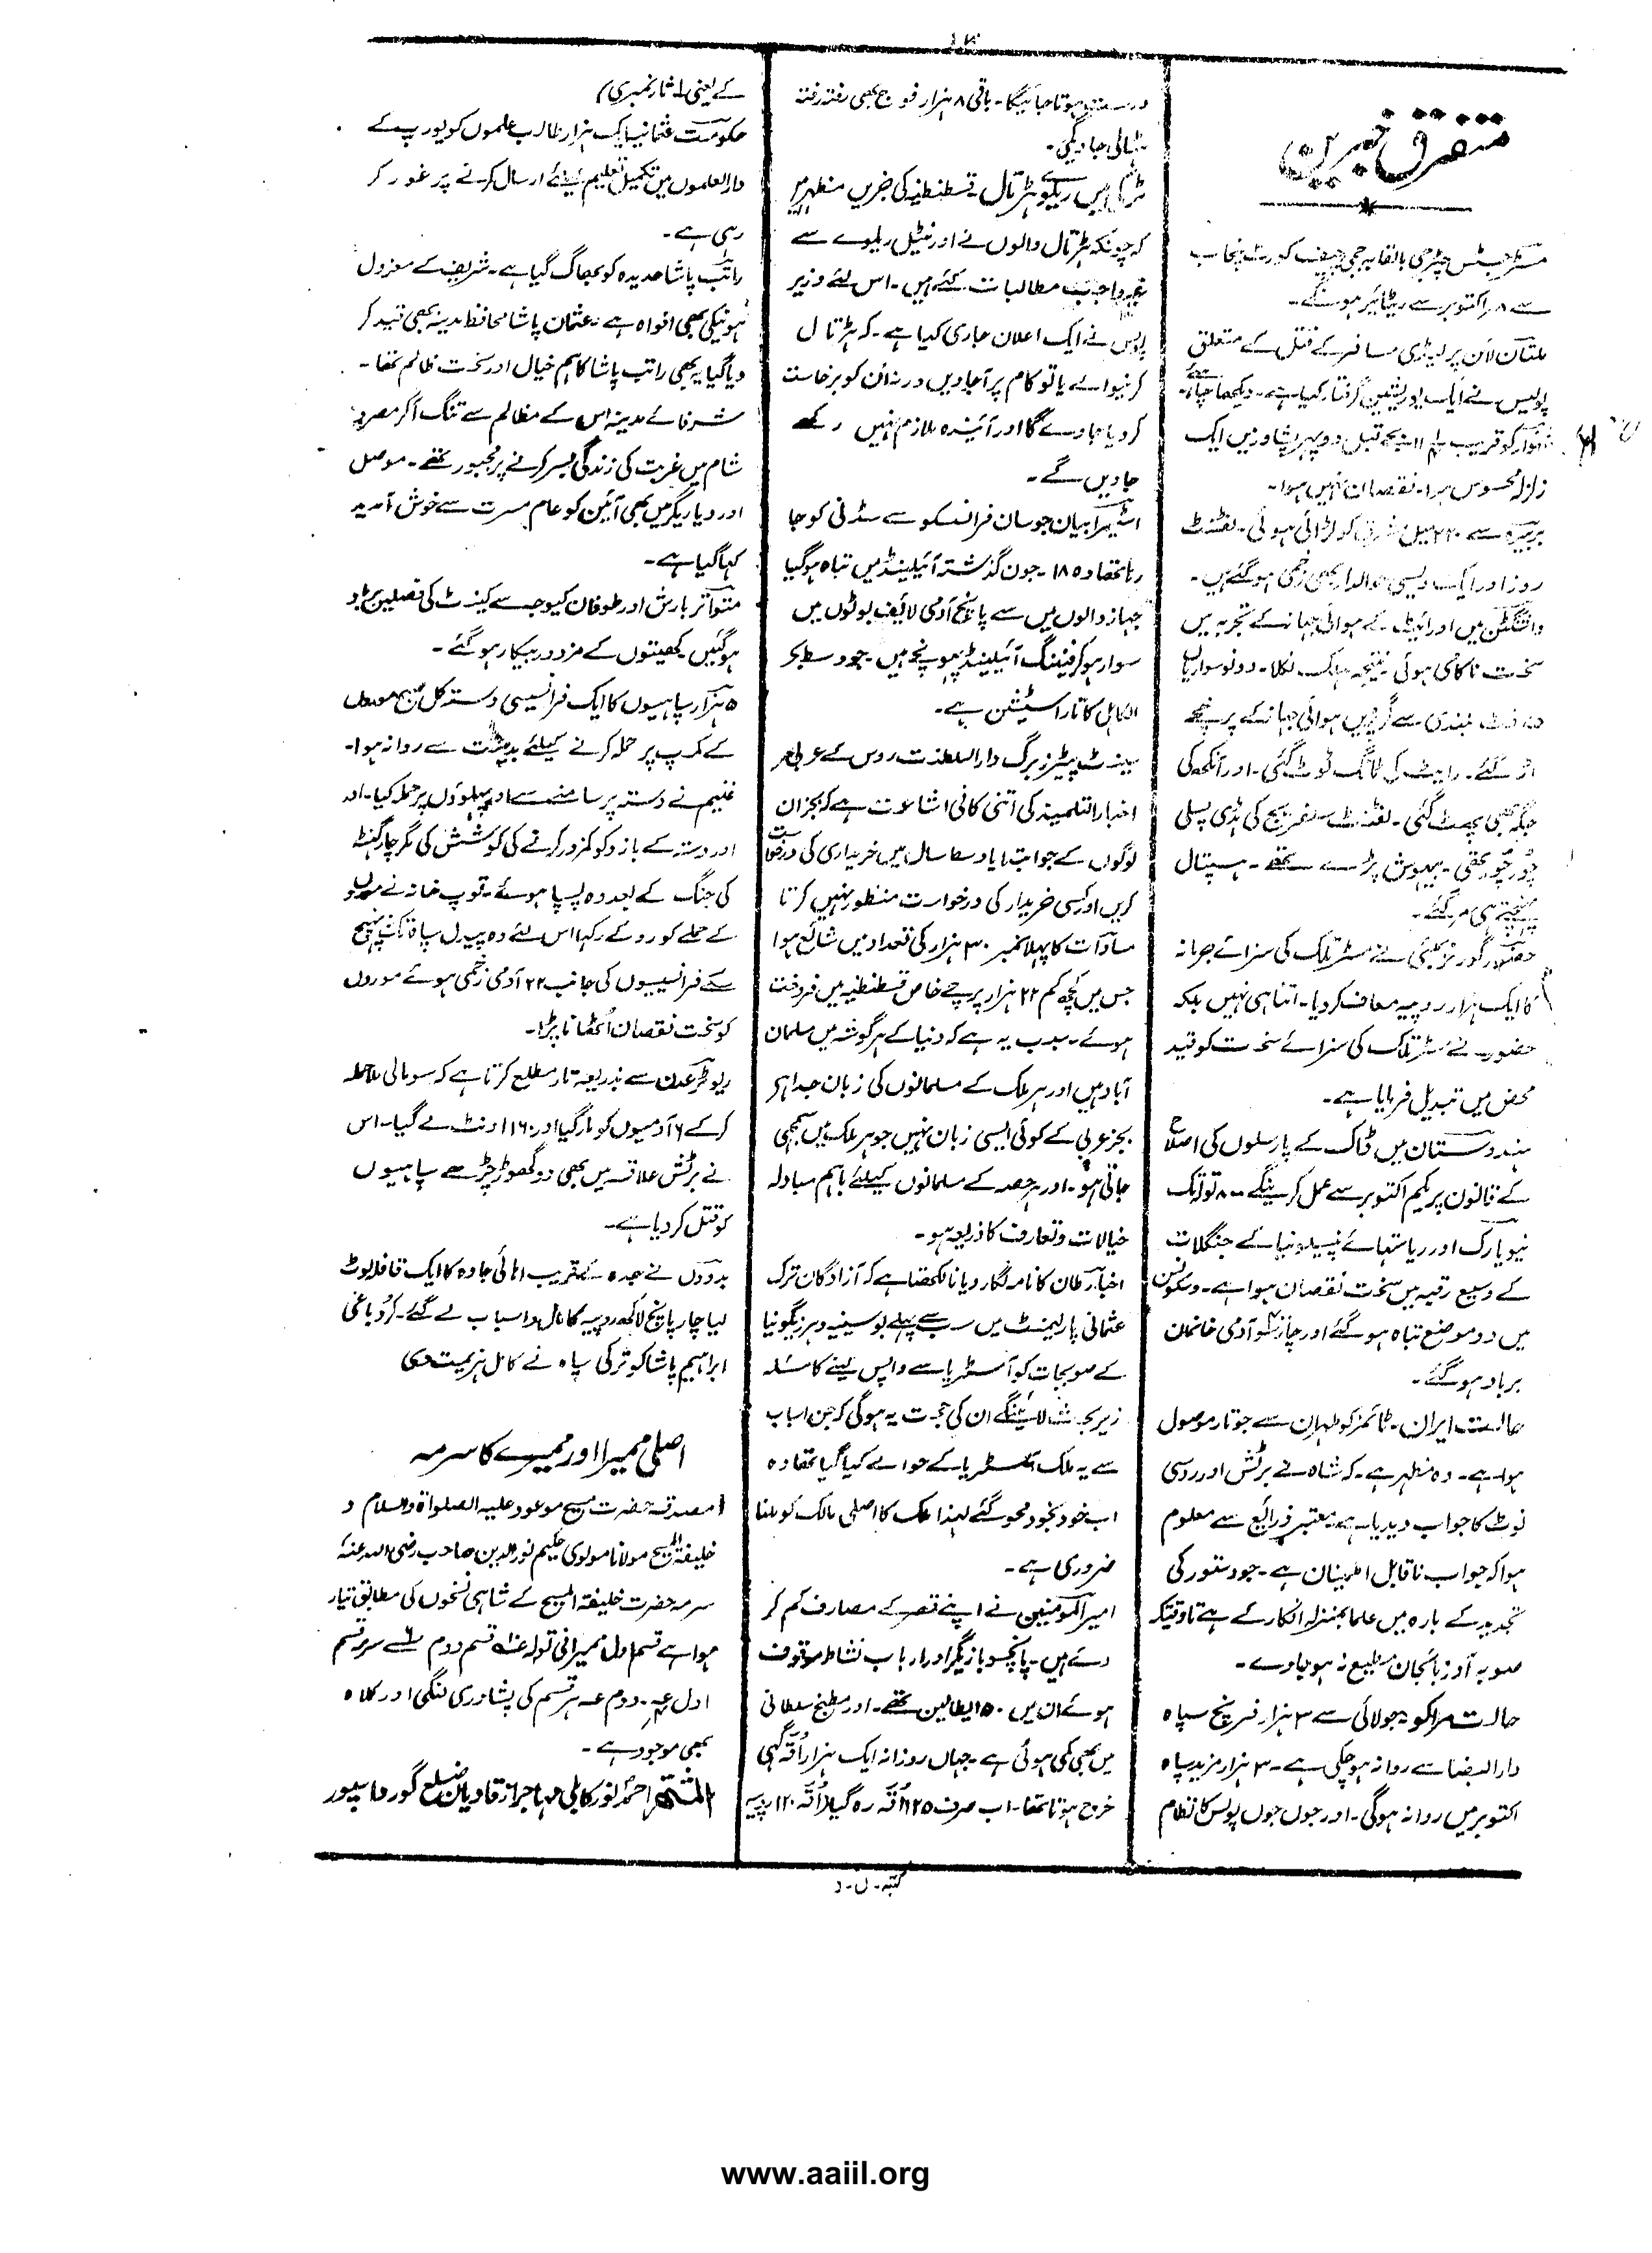 ۱۴
متفرق خبریں
مسٹر جسٹس چٹرجی بالقابہ جج چیف کورٹ پنجاب
سے ۸ اکتوبر سے ریٹائیر ہونگے۔
ملتان لائن پر لیڈی مسافر کے قتل کے متعلق
پولیس نے ایک یوریشین گرفتار کیا ہے۔ دیکھا چاہئے
اتوار کو قریب ۱۱ بجے قبل دوپہر پشاور میں ایک
زلزلہ محسوس ہوا۔ نقصان نہیں ہوا۔
بربیرہ سے ۲۲۰ میل شرق کو لڑائی ہوئی۔ لفٹنٹ
روز اور ایک دیسی حوالدار بھی زخمی ہو گئے ہیں۔
واشنگٹن میں اورائیٹ کے ہوائی جہاز کے تجربہ میں
سخت ناکامی ہوئی نتیجہ مہلک نکلا۔ دونو سواریاں
فٹ بلندی سے گریں ہوائی جہاز کے پرخچے
اڑ گئے۔ رایٹ کی ٹانگ ٹوٹ گئی۔ اور آنکھ کی
جگہ بھی پھٹ گئی۔ لفٹنٹ سلفریج کی ہڈی پسلی
چور چور تھی۔ بیہوش پڑے تھے۔ ہسپتال
پہنچتے ہی مر گئے۔
حضور گورنر بمبئی نے مسٹر تلک کی سزائے جرمانہ
کا ایک ہزار روپیہ معاف کر دیا۔ اتنا ہی نہیں بلکہ
حضور نے مسٹر تلک کی سزائے سخت کو قید
محض میں تبدیل فرمایا ہے۔
ہندوستان میں ڈاک کے پارسلوں کی اصلاح
کے قانون پر یکم اکتوبر سے عمل کرینگے ۸۰۰ تولہ تک
نیویارک اور ریاستہائے پنسیلونیا کے جنگلات
کے وسیع رقبہ میں سخت نقصان ہوا ہے۔ وسکونسن
میں دو موضع تباہ ہو گئے اور چار سو آدمی خانماں
برباد ہو گئے۔
حالت ایران۔ ٹائمز کو طہران سے جو تار موصول
ہوا ہے۔ وہ مظہر ہے۔ کہ شاہ نے برٹش اور روسی
نوٹ کا جواب دیدیا ہے معتبر ذرائع سے معلوم
ہوا کہ جواب ناقابل اطمینان ہے۔ جو دستور کی
تجدید کے بارہ میں علماء بمنزلہ انکار کے ہے تاوقتیکہ
صوبہ آذربائجان مطیع نہ ہو جاوے۔
حالت مراکو۔ جولائی سے ۳ ہزار فرنچ سپاہ
دارالبیضا سے روانہ ہو چکی ہے۔ ۳ ہزار مزید سپاہ
اکتوبر میں روانہ ہوگی۔ اور جوں جوں پولیس کا نظام
درست ہوتا جائیگا۔ باقی ۸ ہزار فوج بھی رفتہ رفتہ
ہٹالی جاویگی۔
ٹرکی میں ریلوے ہڑتال۔ قسطنطنیہ کی خبریں مظہر ہیں
کہ چونکہ ہڑتال والوں نے اورنٹیل ریلوے سے
غیر واجب مطالبات کئے ہیں۔ اس لئے وزیر
پولس نے ایک اعلان جاری کیا ہے۔ کہ ہڑتال
کرنیوالے یا تو کام پر آجاویں ورنہ ان کو برخاست
کر دیا جاوے گا اور آئندہ ملازم نہیں رکھے
جاویں گے۔
اسٹیمر ابیان جو سان فرانسکو سے سڈنی کو جا
رہا تھا وہ ۱۸ جون گذشتہ آئیلینڈ میں تباہ ہو گیا
جہاز والوں میں سے پانچ آدمی لائیف بوٹوں میں
سوار ہو کر فیننگ آئیلینڈ پہونچے ہیں۔ جو وسط بحر
الکاہل کا تار اسٹیشن ہے۔
سینٹ پیٹرزبرگ دارالسلطنت روس کے عربی
اخبار التلمیذ کی اتنی کافی اشاعت ہے کہ بجز ان
لوگوں کے جو ابتدا وسط سال میں خریداری کی درخواست
کریں اور کسی خریدار کی درخواست منظور نہیں کرتا
مساوات کا پہلا نمبر ۳۰ ہزار کی تعداد میں شائع ہوا
جس میں کچھ کم ۲۲ ہزار پرچے خاص قسطنطنیہ میں فروخت
ہوئے۔ سبب یہ ہے کہ دنیا کے ہر گوشہ میں مسلمان
آباد ہیں اور ہر ملک کے مسلمانوں کی زبان جدا ہے
بجز عربی کے کوئی ایسی زبان نہیں جو ہر ملک میں سمجھی
جاتی ہو۔ اور ہر حصہ کے مسلمانوں کیلئے باہم مبادلہ
خیالات و تعارف کا ذریعہ ہو۔
اخبار طان کا نامہ نگار ویانا لکھتا ہے کہ آزادگان ترک
عثمانی پارلیمنٹ میں سب سے پہلے بوسینیہ و ہرزیگونیا
کے صوبجات کو آسٹریا سے واپس لینے کا مسئلہ
زیر بحث لائینگے ان کی حجت یہ ہوگی کہ جن اسباب
سے یہ ملک آسٹریا کے حوالے کیا گیا تھا وہ
اب خود بخود محو ہو گئے لہذا ملک کا اصلی مالک کو ملنا
ضروری ہے۔
امیر المومنین نے اپنے قصر کے مصارف کم کر
دئے ہیں۔ پانچسو بازیگر اور ارباب نشاط موقوف
ہوئے ان میں ۱۵۰ ایطالین تھے۔ اور مطبخ سلطانی
میں بھی کمی ہوئی ہے۔ جہاں روزانہ ایک ہزار اُقہ گھی
خرچ ہوتا تھا۔ اب صرف ۱۲۵ اُقہ رہ گیا (اُقہ ۱۲۰ روپیہ
کے یعنی ۱ ثار نمبری)
حکومت عثمانیہ ایک ہزار طالب علموں کو یورپ کے
دارالعلوموں میں تکمیل تعلیم کیلئے ارسال کرنے پر غور کر
رہی ہے۔
راتب پاشا حدیدہ کو بھاگ گیا ہے۔ شریف کے معزول
ہونیکی بھی افواہ ہے۔ عثمان پاشا محافظ مدینہ بھی قید کر
دیا گیا یہ بھی راتب پاشا کا ہم خیال اور سخت ظالم تھا۔
شرفائے مدینہ اس کے مظالم سے تنگ آکر مصر و
شام میں غربت کی زندگی بسر کرنے پر مجبور تھے۔ موصل
اور دیاربکر میں بھی آئین کو عام مسرت سے خوش آمدید
کہا گیا ہے۔
متواتر بارش اور طوفان کیوجہ سے کینٹ کی فصلیں برباد
ہوگئیں کھیتوں کے مزدور بیکار ہو گئے۔
۵ ہزار سپاہیوں کا ایک فرانسیسی دستہ کل صبح موروں
کے کمپ پر حملہ کرنے کیلئے سے روانہ ہوا۔
غنیم نے دستہ پر سامنے سے اور پہلوؤں پر حملہ کیا۔ اور
اور دستہ کے بازو کو کمزور کرنے کی کوشش کی مگر چار گھنٹہ
کی جنگ کے بعد وہ پسپا ہوئے۔ توپ خانہ نے موروں
کے حملے کو روکے رکھا اس لئے وہ پیدل سپاہ تک نہ پہنچ
سکے فرانسیسیوں کی جانب ۲۲ آدمی زخمی ہوئے موروں
کو سخت نقصان اُٹھانا پڑا۔
ریوٹر عدن سے بذریعہ تار مطلع کرتا ہے کہ سومالی ملا حملہ
کر کے ۶ آدمیوں کو مار گیا اور ۱۶۰ اونٹ لے گیا۔ اس
نے برٹش علاقہ میں بھی دو گھوڑ چڑھے سپاہیوں
کو قتل کر دیا ہے۔
بدووں نے جدہ کے قریب اہالی جاوہ کا ایک قافلہ لوٹ
لیا چار پانچ لاکھ روپیہ کا مال و اسباب لے گئے۔ کرد باغی
ابراہیم پاشا کو ترکی سپاہ نے کامل ہزیمت دی
اصلی ممیرا اور ممیرے کا سرمہ
مصدقہ حضرت مسیح موعود علیہ الصلواۃ والسلام و
خلیفۃ المسیح مولانا مولوی حکیم نورالدین صاحب رضی اللہ عنہٗ
سرمہ حضرت خلیفۃ المسیح کے شاہی نسخوں کی مطابق تیار
ہوا ہے قسم اول ممیرا فی تولہ قسم دوم سرمہ قسم
اول دوم ہر قسم کی پشاوری لنگی اور کلاہ
بھی موجود ہے۔
المشتہر احمد نور کابلی مہاجر از قادیان ضلع گورداسپور
کتبہ۔ ں۔ د
www.aaiil.org